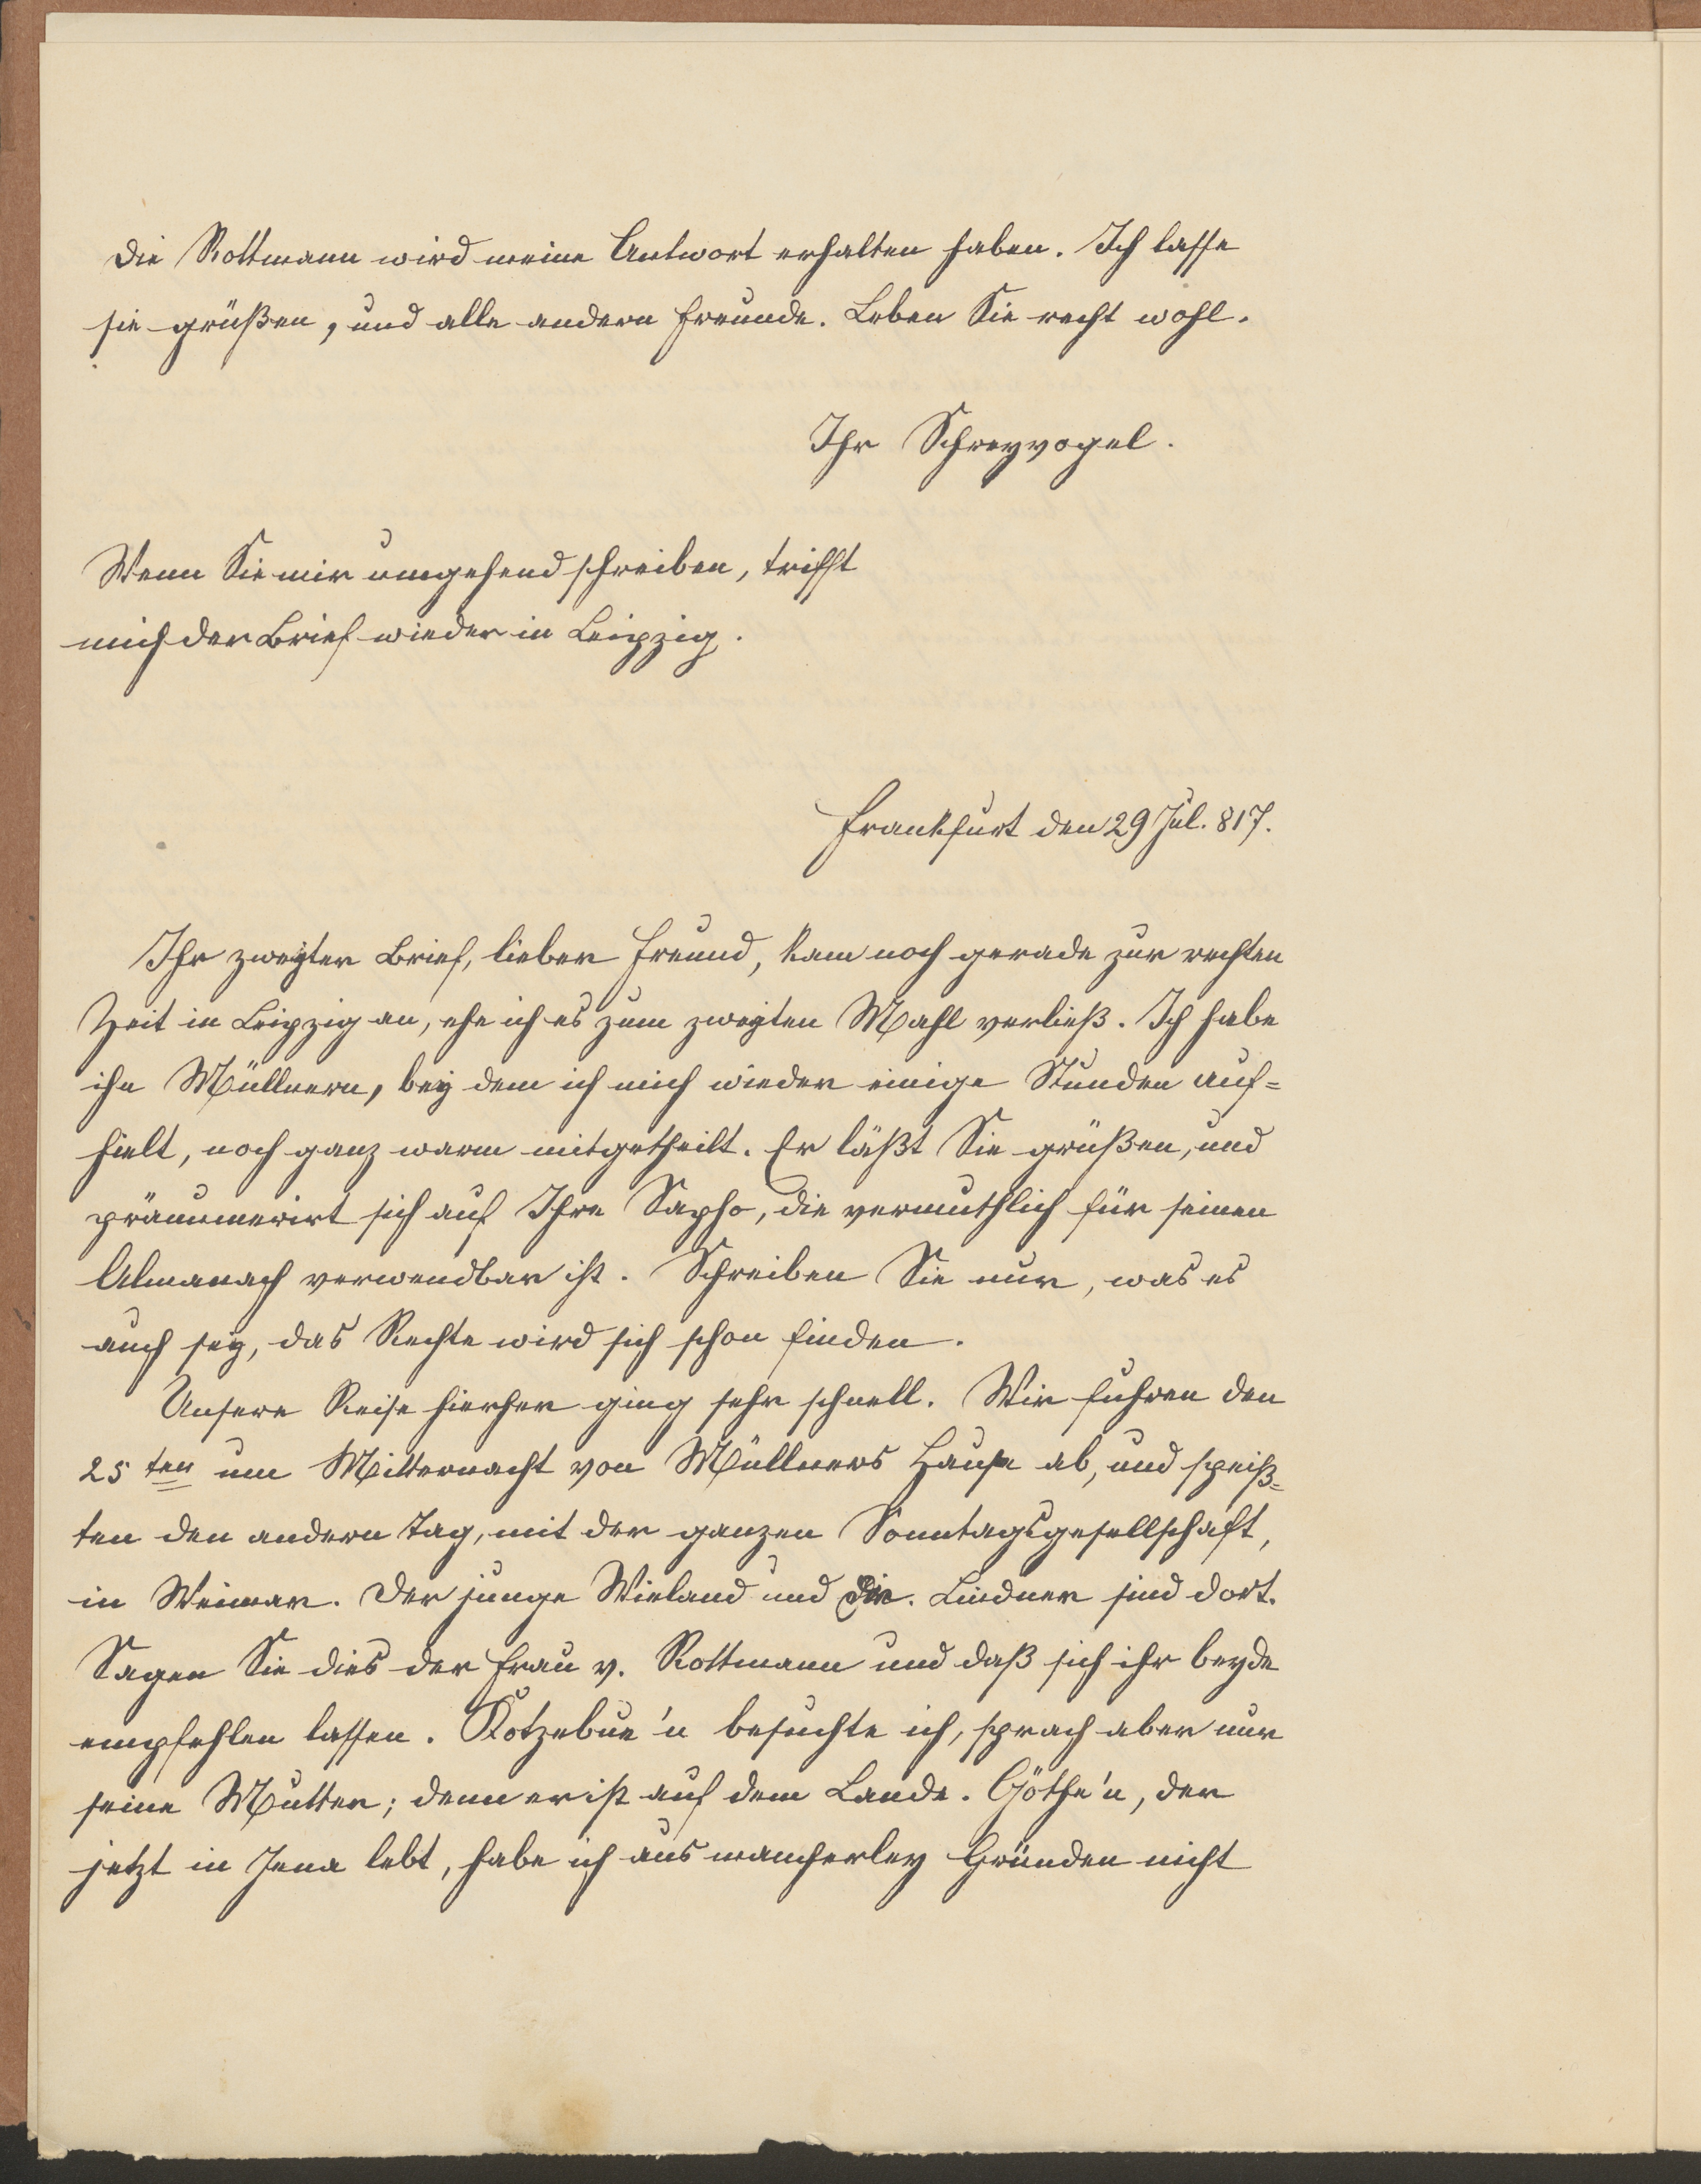 Die Rottmann wird meine Antwort erhalten haben. Ich lasse
sie grüßen, und alle andern Freunde. Leben Sie recht wohl.
Ihr Schreyvogel.
Wenn Sie mir umgehend schreiben, trifft
mich der Brief wieder in Leipzig.
Frankfurt den 29 Jul. 817.
Ihr zweyter Brief, lieber Freund, kam noch gerade zur rechten
Zeit in Leipzig an, ehe ich es zum zweyten Mahl verließ. Ich habe
ihn Müllnern, bey dem ich mich wieder einige Stunden auf=
hielt, noch ganz warm mitgetheilt. Er läßt Sie grüßen, und
pränumerirt sich auf Ihre Sapho, die vermuthlich für seinen
Almanach verwendbar ist. Schreiben Sie nur, was es
auch sey, das Rechte wird sich schon finden.
Unsere Reise hierher ging sehr schnell. Wir fuhren den
25 ten um Mitternacht von Müllners Hause ab, und speiß=
ten den andern Tag, mit der ganzen Sonntagsgesellschaft,
in Weimar. Der junge Wieland und Dr. Lindner sind dort.
Sagen Sie dies der Frau v. Rottmann und daß sich ihr beyde
empfehlen lassen. Kotzebue'n besuchte ich, sprach aber nur
seine Mutter; denn er ist auf dem Lande. Göthe'n, der
jetzt in Jena lebt, habe ich aus mancherley Gründen nicht